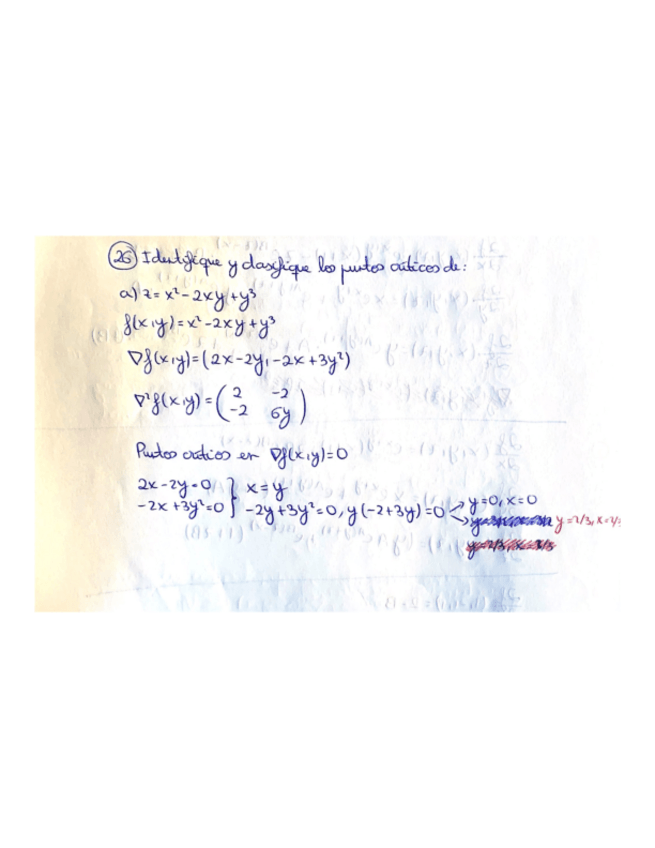 26 Identifique y clasifique los puntos críticos de:
a) z = x² - 2xy + y³
f(x,y) = x² - 2xy + y³
∇f(x,y) = (2x - 2y, -2x + 3y²)
∇²f(x,y) = ( 2 -2
-2 6y )
Puntos críticos en ∇f(x,y) = 0
2x - 2y = 0 } x = y
-2x + 3y² = 0 } -2y + 3y² = 0, y(-2 + 3y) = 0 y = 0, x = 0
y = 2/3, x = 2/3